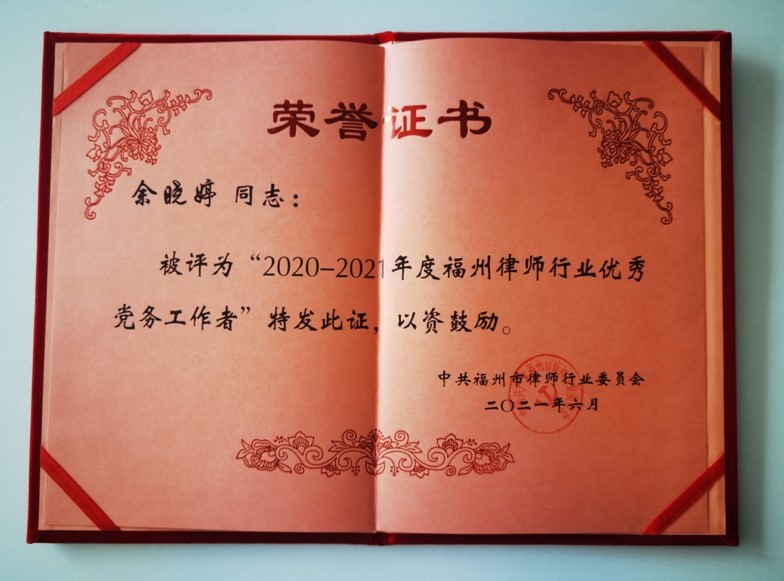 荣誉证书
余晓婷 同志：
被评为“2020-2021年度福州律师行业优秀
党务工作者”特发此证，以资鼓励。
中共福州市律师行业委员会
二〇二一年六月